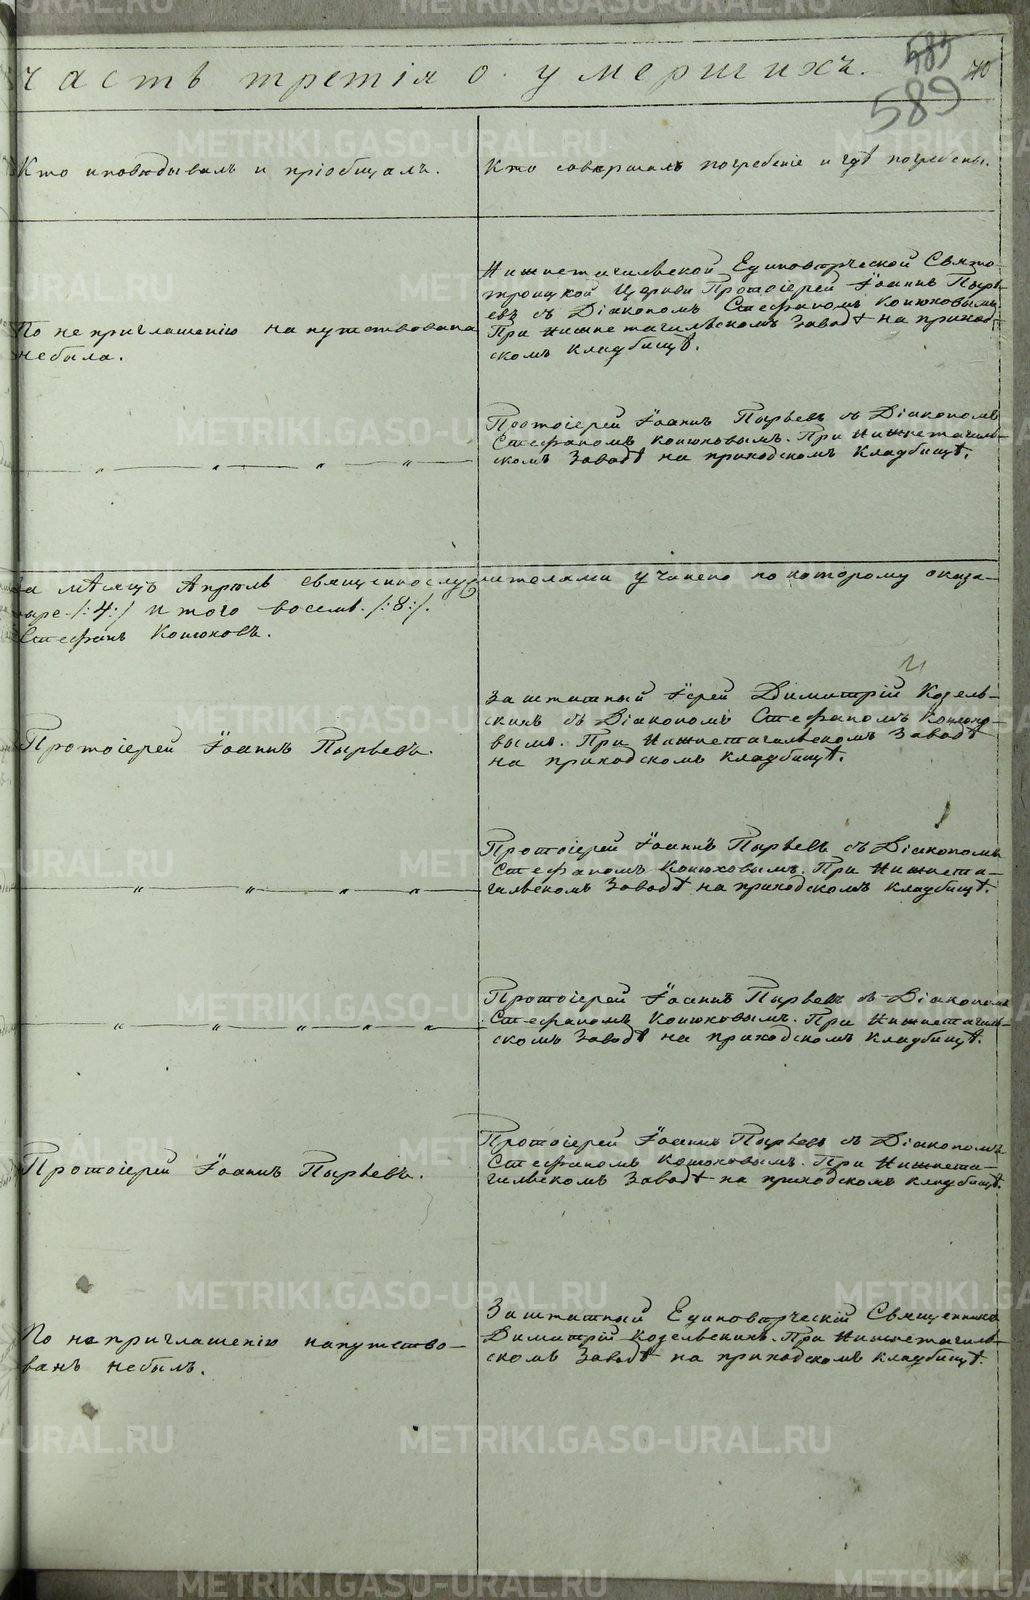 METRIKI.GASO-URAL.RU
часть третія о умершихъ.
585
589
70
Кто исповѣдывалъ и пріобщалъ.
Кто совершалъ погребеніе и гдѣ погребены.
Нижнетагильской Единовѣрческой Свято-
троицкой Церкви Протоіерей Іоаннъ Пырь-
евъ съ Діакономъ Стефаномъ Конюховымъ.
При Нижнетагильскомъ Заводѣ на приход-
скомъ кладбищѣ.
По не приглашенію напутствована
небыла.
Протоіерей Іоаннъ Пырьевъ съ Діакономъ
Стефаномъ Конюховымъ. При Нижнетагиль-
скомъ Заводѣ на приходскомъ Кладбищѣ.
— „ — „ — „ — „ —
за мѣсяцъ Апрѣль священнослужителями учинено по которому оказа-
тыре /:4:/ Итого восемь /:8:/.
Стефанъ Конюховъ.
Протоіерей Іоаннъ Пырьевъ.
Заштатный Іерей Димитрій Козель-
скихъ съ Діакономъ Стефаномъ Конюхо-
вымъ. При Нижнетагильскомъ Заводѣ
на приходскомъ кладбищѣ.
— „ — „ — „ — „ —
Протоіерей Іоаннъ Пырьевъ съ Діакономъ
Стефаномъ Конюховымъ. При Нижнета-
гильскомъ Заводѣ на приходскомъ кладбищѣ.
— „ — „ — „ — „ — „ —
Протоіерей Іоаннъ Пырьевъ съ Діакономъ
Стефаномъ Конюховымъ. При Нижнетагиль-
скомъ Заводѣ на приходскомъ Кладбищѣ.
Протоіерей Іоаннъ Пырьевъ.
Протоіерей Іоаннъ Пырьевъ съ Діакономъ
Стефаномъ Конюховымъ. При Нижнета-
гильскомъ Заводѣ на приходскомъ кладбищѣ.
По не приглашенію напутство-
ванъ небылъ.
Заштатный Единовѣрческій Священникъ
Димитрій Козельскихъ. При Нижнетагиль-
скомъ Заводѣ на приходскомъ кладбищѣ.
METRIKI.GASO-URAL.RU